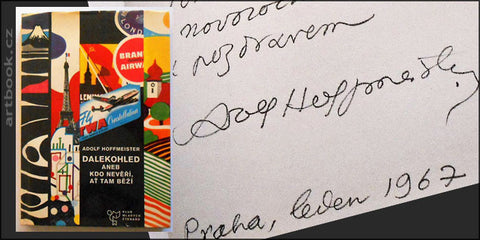 artbook.cz
LONDO
BRAN
AIRWA
Fly
TWA Constellation
ADOLF HOFFMEISTER
DALEKOHLED
ANEB
KDO NEVĚŘÍ,
AŤ TAM BĚŽÍ
KLUB
MLADÝCH
ČTENÁŘŮ
pozdravem
Adolf Hoffmeister
Praha, leden 1967